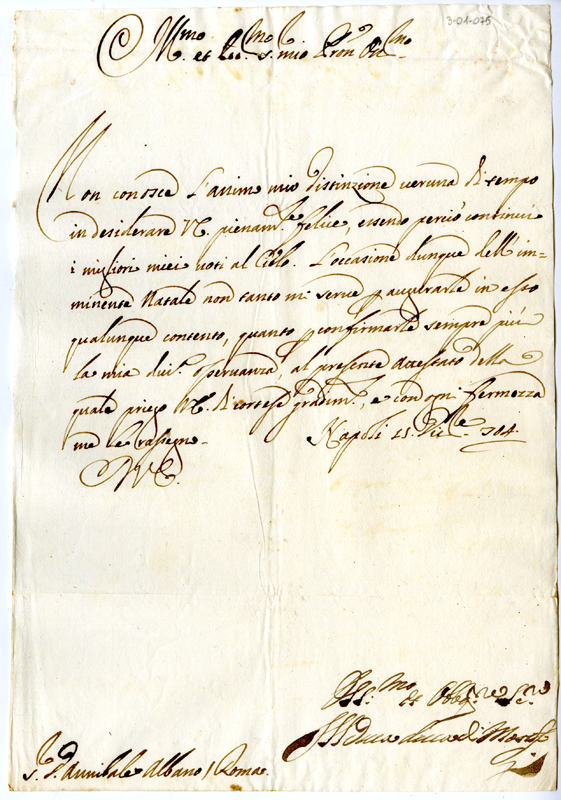 3-01-075
Illmo. et Ecc.mo S. mio Pron Oss.mo
Non conosce l'animo mio distinzione veruna di tempo
in desiderare V.E. pienam.te felice, essendo perciò continui
i migliori miei voti al Cielo. L'occasione dunque dell'im=
minente Natale non tanto mi serve p augurarle in esso
qualunque contento, quanto p confirmarle sempre più
la mia div.a osservanza, al presente attestato della
quale priego V.E. di cortese gradim.to, e con ogni fermezza
me le rassegno.
Napoli 15 Dic.bre 704.
V.E.
Dss.mo et Obbg.mo Se.re
Il Duca
S.r D. Annibale Albano / Roma.